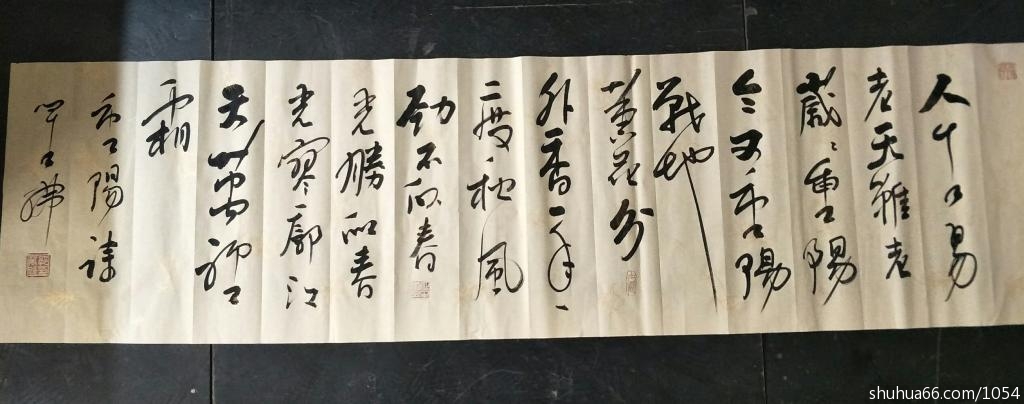 人生易
老天難老
歲歲重陽
今又重陽
戰地
黃花分
外香一年
一度秋風
勁不似春
光勝似春
光寥廓江
天萬里
霜
重陽詩
shuhua66.com/1054